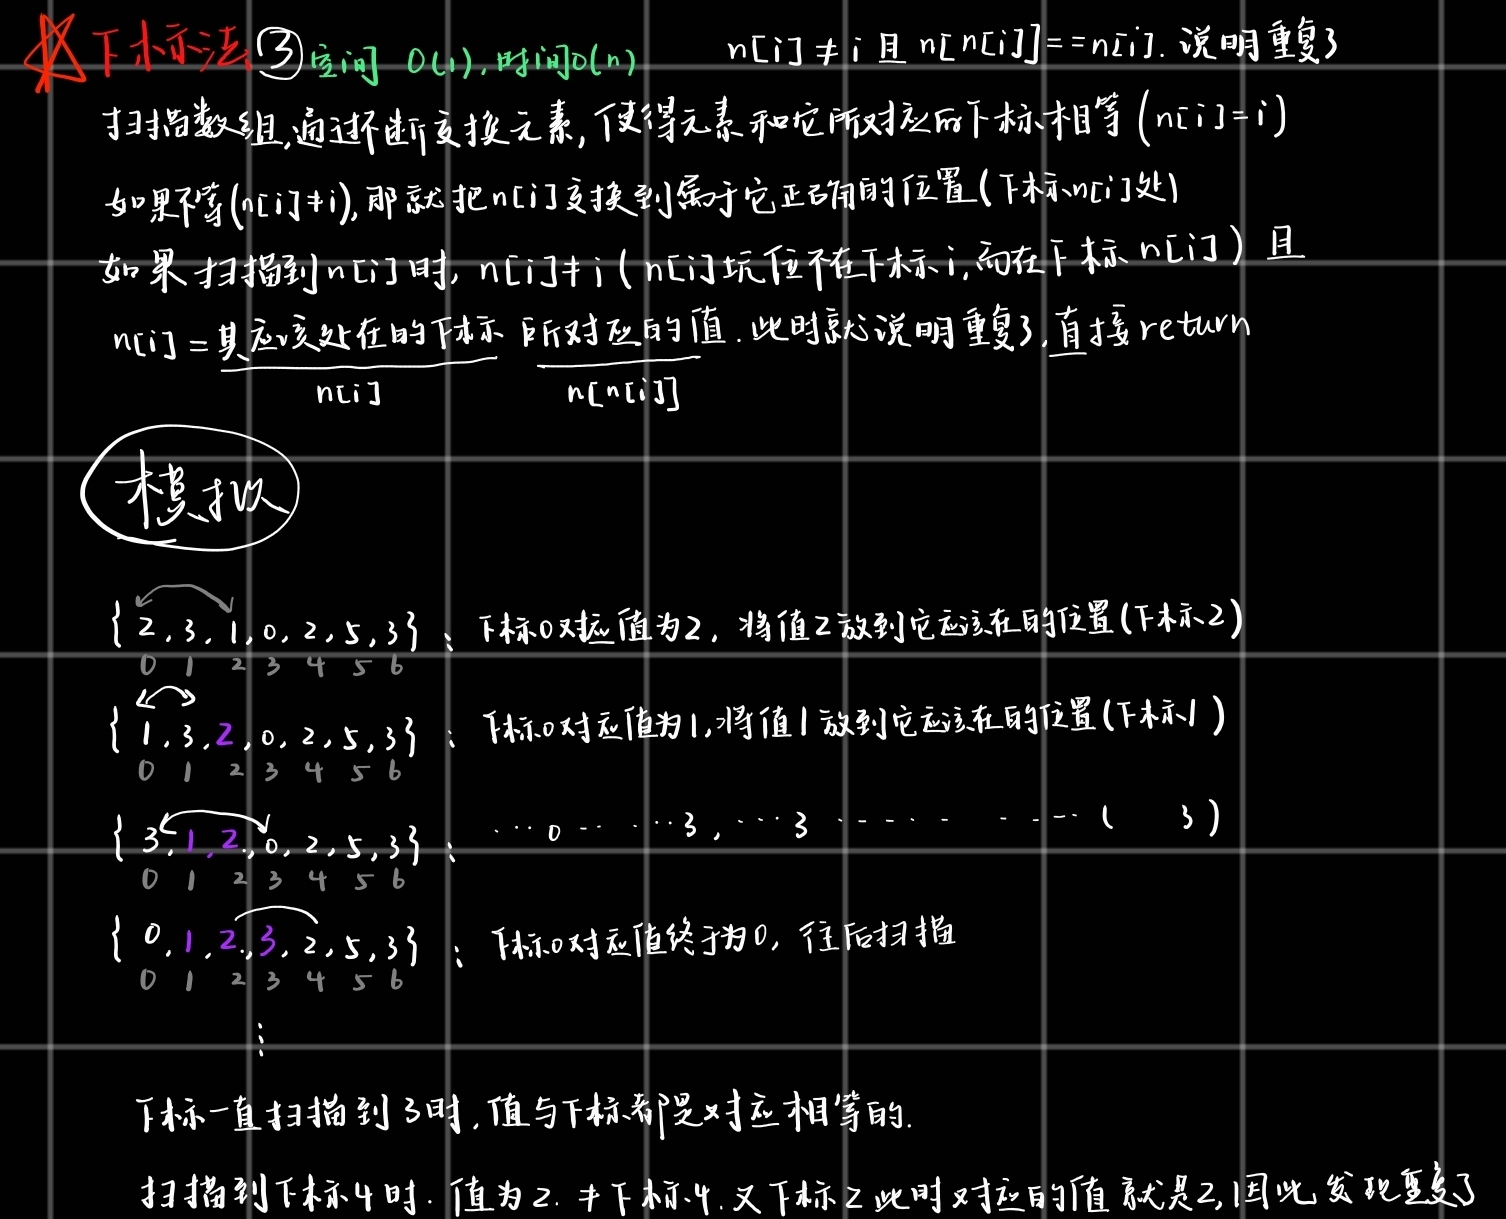 下标法 ③ 空间 O(1), 时间O(n) n[i] ≠ i 且 n[n[i]]==n[i]. 说明重复了
扫描数组,通过不断交换元素, 使得元素和它所对应的下标相等 (n[i]=i)
如果不等(n[i]≠i), 那就把n[i]交换到属于它正确的位置(下标n[i]处)
如果扫描到n[i]时, n[i]≠i ( n[i]坑位不在下标i,而在下标 n[i] ) 且
n[i] = 其应该处在的下标 所对应的值. 此时就说明重复了,直接return
n[i] n[n[i]]
模拟
{ 2, 3, 1, 0, 2, 5, 3} ; 下标0对应值为2, 将值2放到它应该在的位置(下标2)
0 1 2 3 4 5 6
{ 1, 3, 2, 0, 2, 5, 3} ; 下标0对应值为1,将值1放到它应该在的位置(下标1)
0 1 2 3 4 5 6
{ 3, 1, 2, 0, 2, 5, 3} ; ...0... ...3, ...3 ... ... ( 3 )
0 1 2 3 4 5 6
{ 0, 1, 2, 3, 2, 5, 3} ; 下标0对应值终于为0, 往后扫描
0 1 2 3 4 5 6
⋮
下标一直扫描到3时, 值与下标都是对应相等的.
扫描到下标4时. 值为2. ≠下标4. 又下标2此时对应的值就是2,因此发现重复了